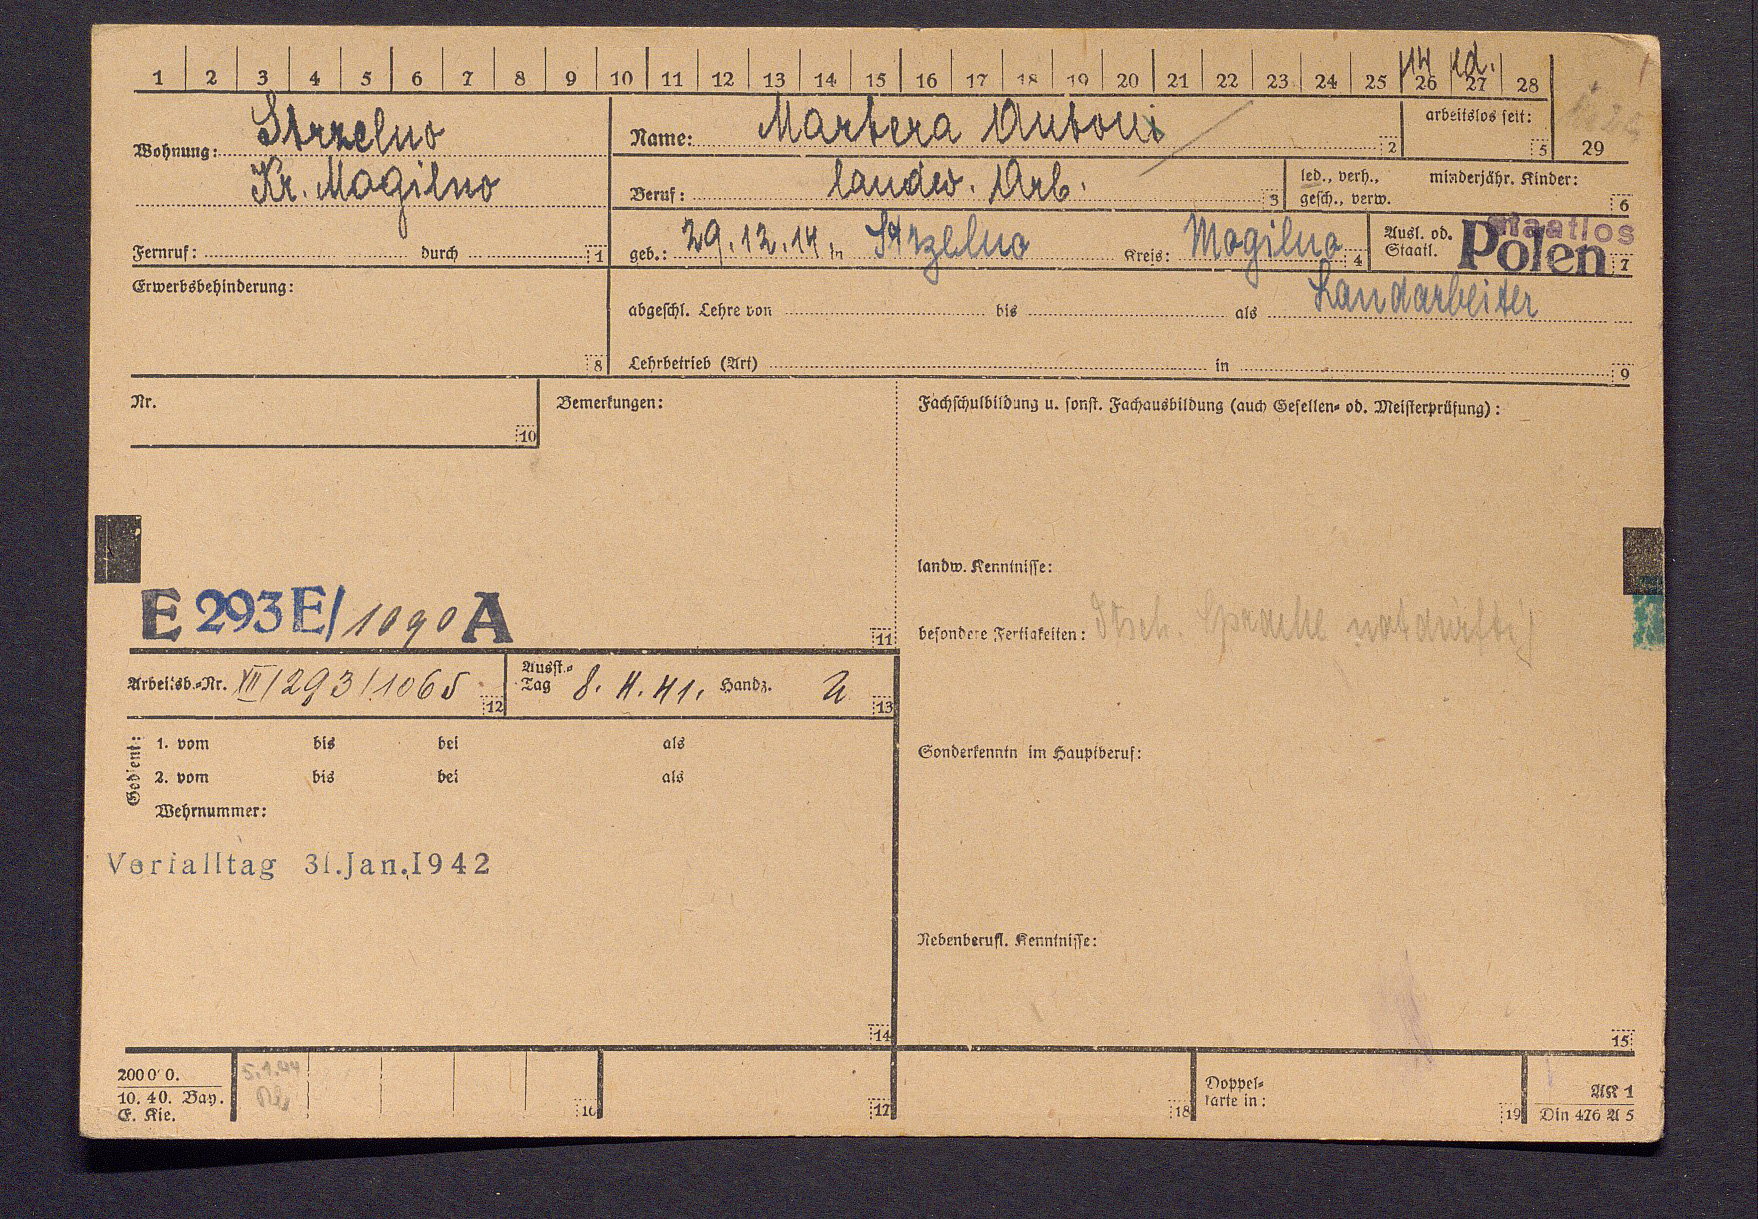 1 2 3 4 5 6 7 8 9 10 11 12 13 14 15 16 17 18 19 20 21 22 23 24 25 26 27 28
14
Wohnung: Strzelno
Kr. Mogilno
Fernruf: durch 1
Name: Martera Antoni 2
arbeitslos seit: 5
29
Beruf: landw. Arb. 3
led., verh.,
gesch., verw.
minderjähr. Kinder: 6
geb.: 29.12.14. in Strzelno Kreis: Mogilno 4
Ausl. od.
Staatl.
Staatlos
Polen 7
Erwerbsbehinderung: 8
abgeschl. Lehre von bis als Landarbeiter
Lehrbetrieb (Art) in 9
Nr. 10
Bemerkungen:
Fachschulbildung u. sonst. Fachausbildung (auch Gesellen- od. Meisterprüfung):
landw. Kenntnisse:
E 293 E/1090 A 11
besondere Fertigkeiten: Dtsch. Sprache notdürftig
Arbeitsb.-Nr. XII/293/1065 12
Ausst.-
Tag 8. 11. 41. Handz. 13
Gedient:
1. vom bis bei als
2. vom bis bei als
Wehrnummer:
Sonderkenntn im Hauptberuf:
Verfalltag 31.Jan.1942
Nebenberufl. Kenntnisse:
14
15
20000.
10. 40. Bay.
E. Kie.
5.1.44
16
17
18
Doppel-
karte in: 19
AK 1
Din 476 A 5